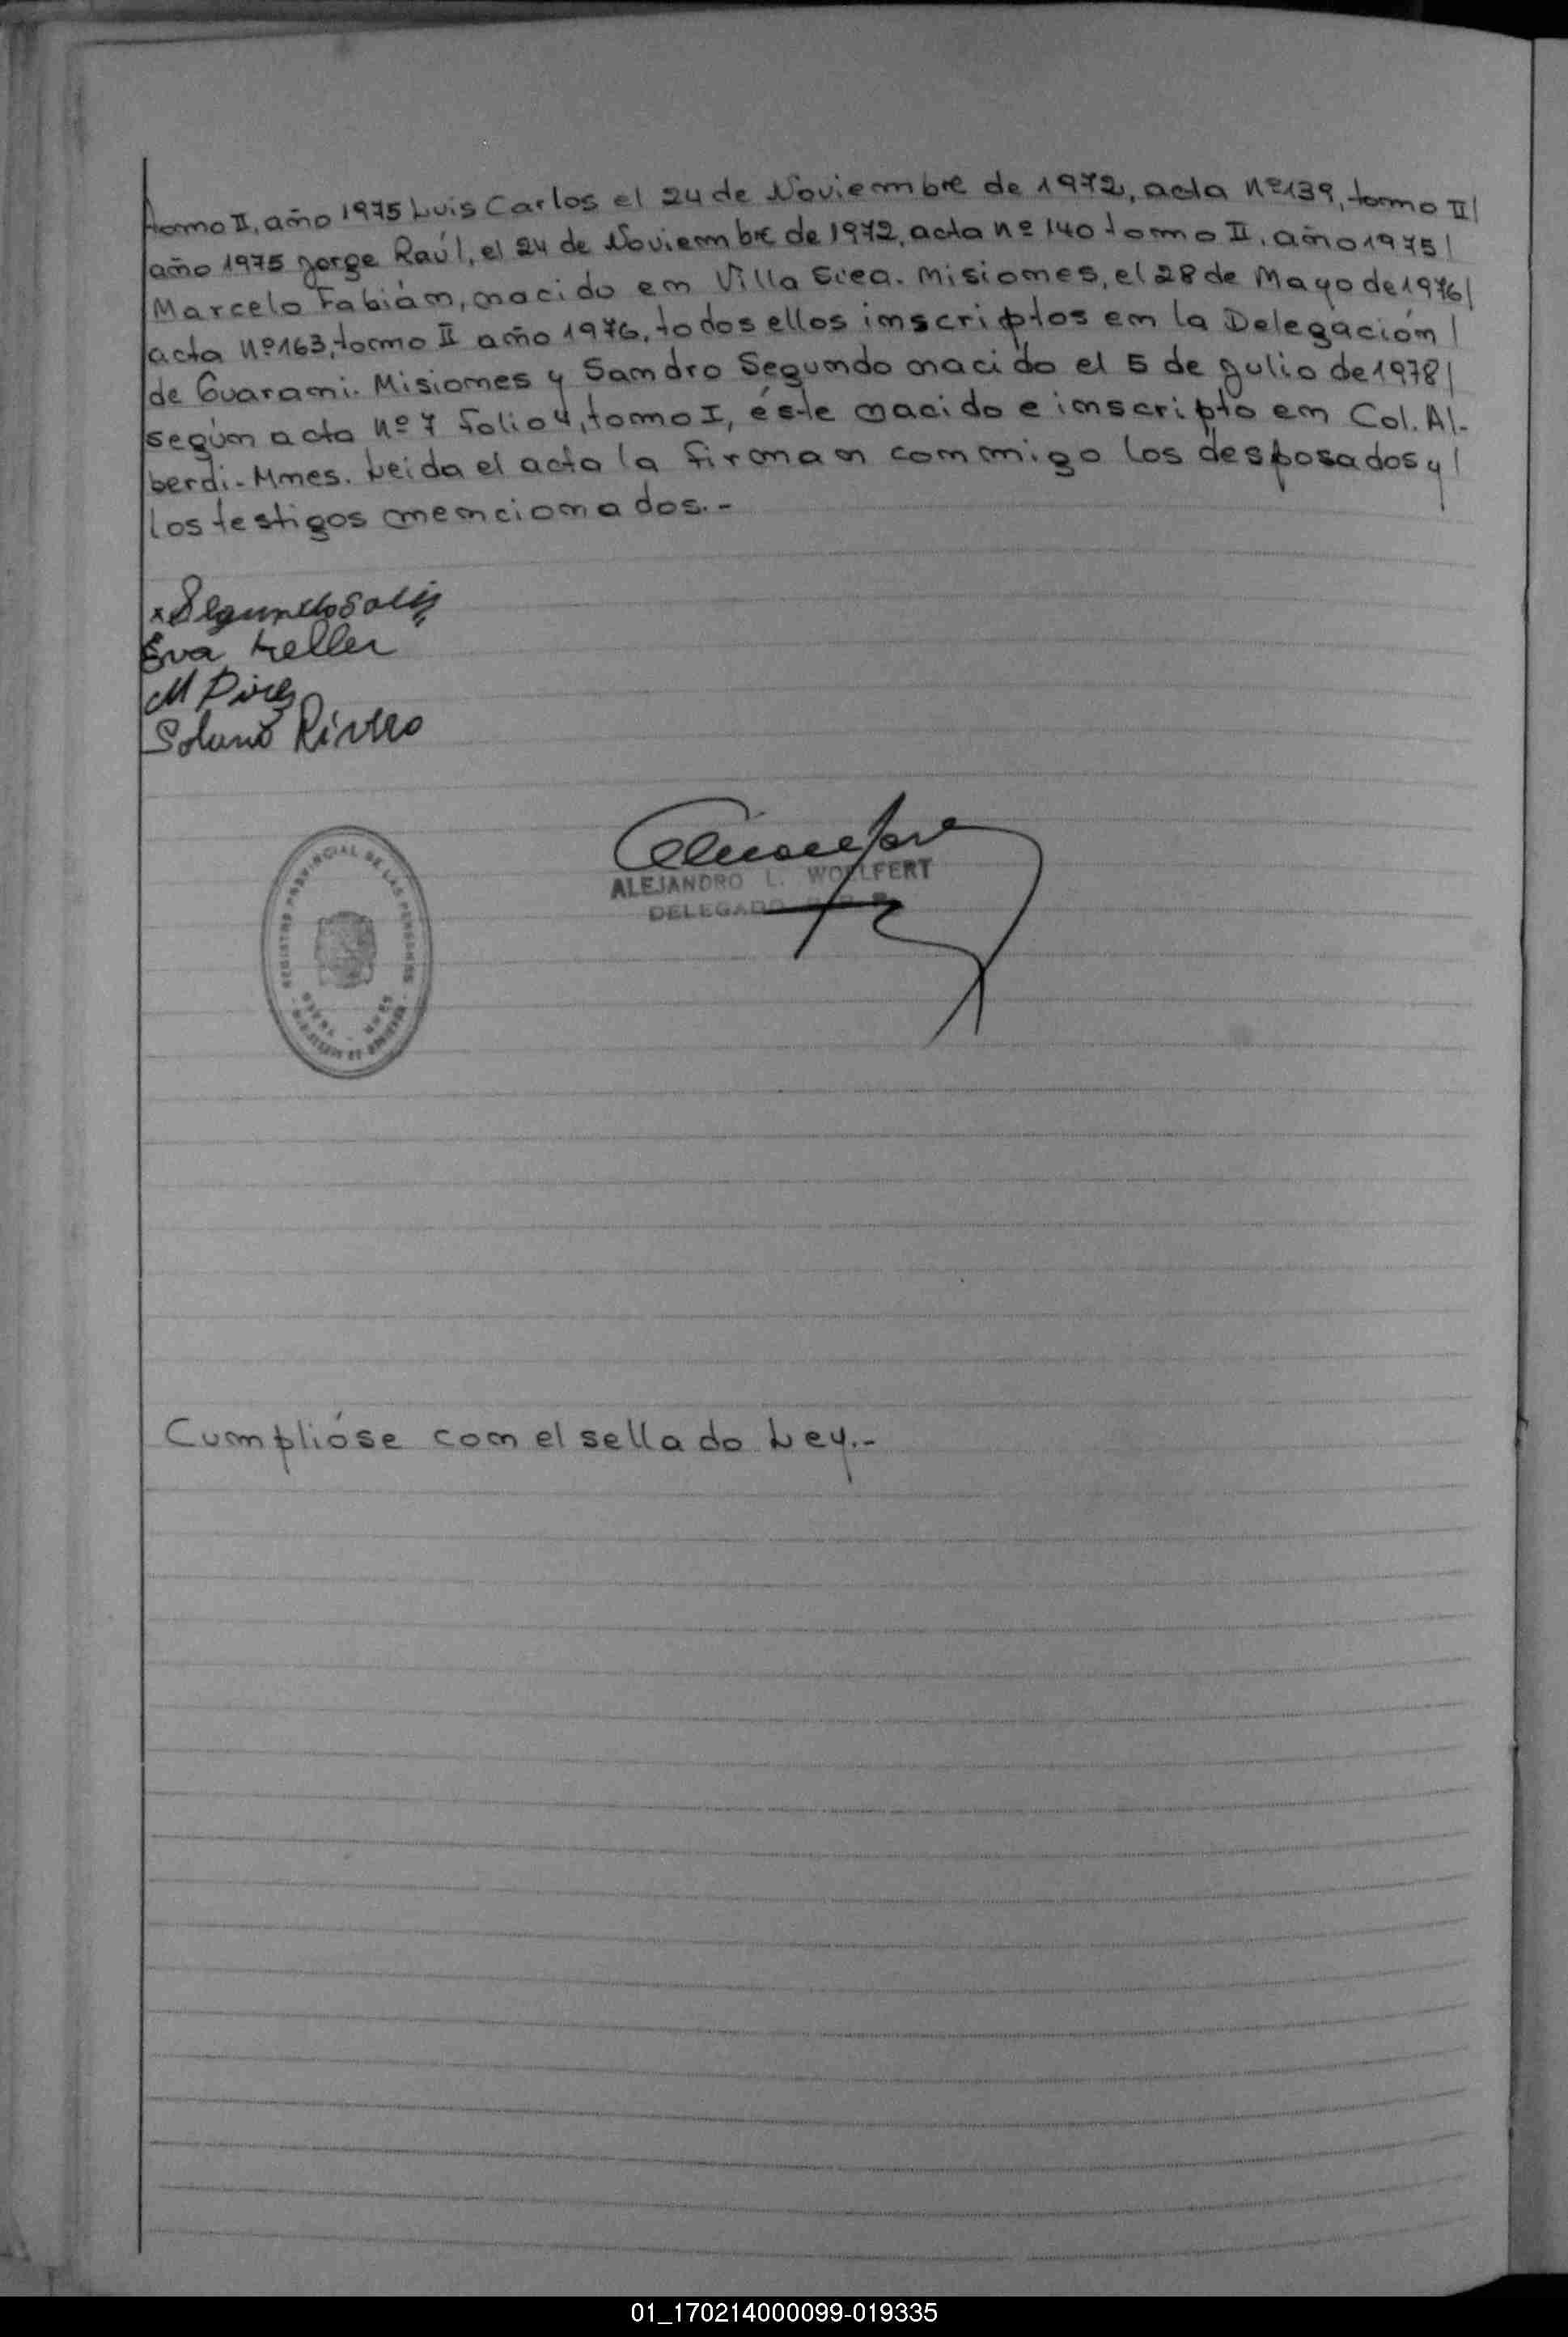 tomo II, año 1975 Luis Carlos el 24 de Noviembre de 1972, acta Nº139, tomo II/
año 1975 Jorge Raúl, el 24 de Noviembre de 1972, acta nº 140 tomo II, año 1975/
Marcelo Fabián, nacido en Villa Svea. Misiones, el 28 de Mayo de 1976/
acta Nº163, tomo II año 1976, todos ellos inscriptos en la Delegación/
de Guarani. Misiones y Sandro Segundo nacido el 5 de Julio de 1978/
según acta Nº 7 Folio 4, tomo I, éste nacido e inscripto en Col. Al-
berdi - Mnes. Leida el acta la firman conmigo los desposados y/
los testigos mencionados.-
x Segundo Solis
Eva Keller
M Pires
Solano Rivero
REGISTRO PROVINCIAL DE LAS PERSONAS
ALEJANDRO L. WOELFERT
DELEGADO
Cumplióse con el sellado Ley.-
01_170214000099-019335